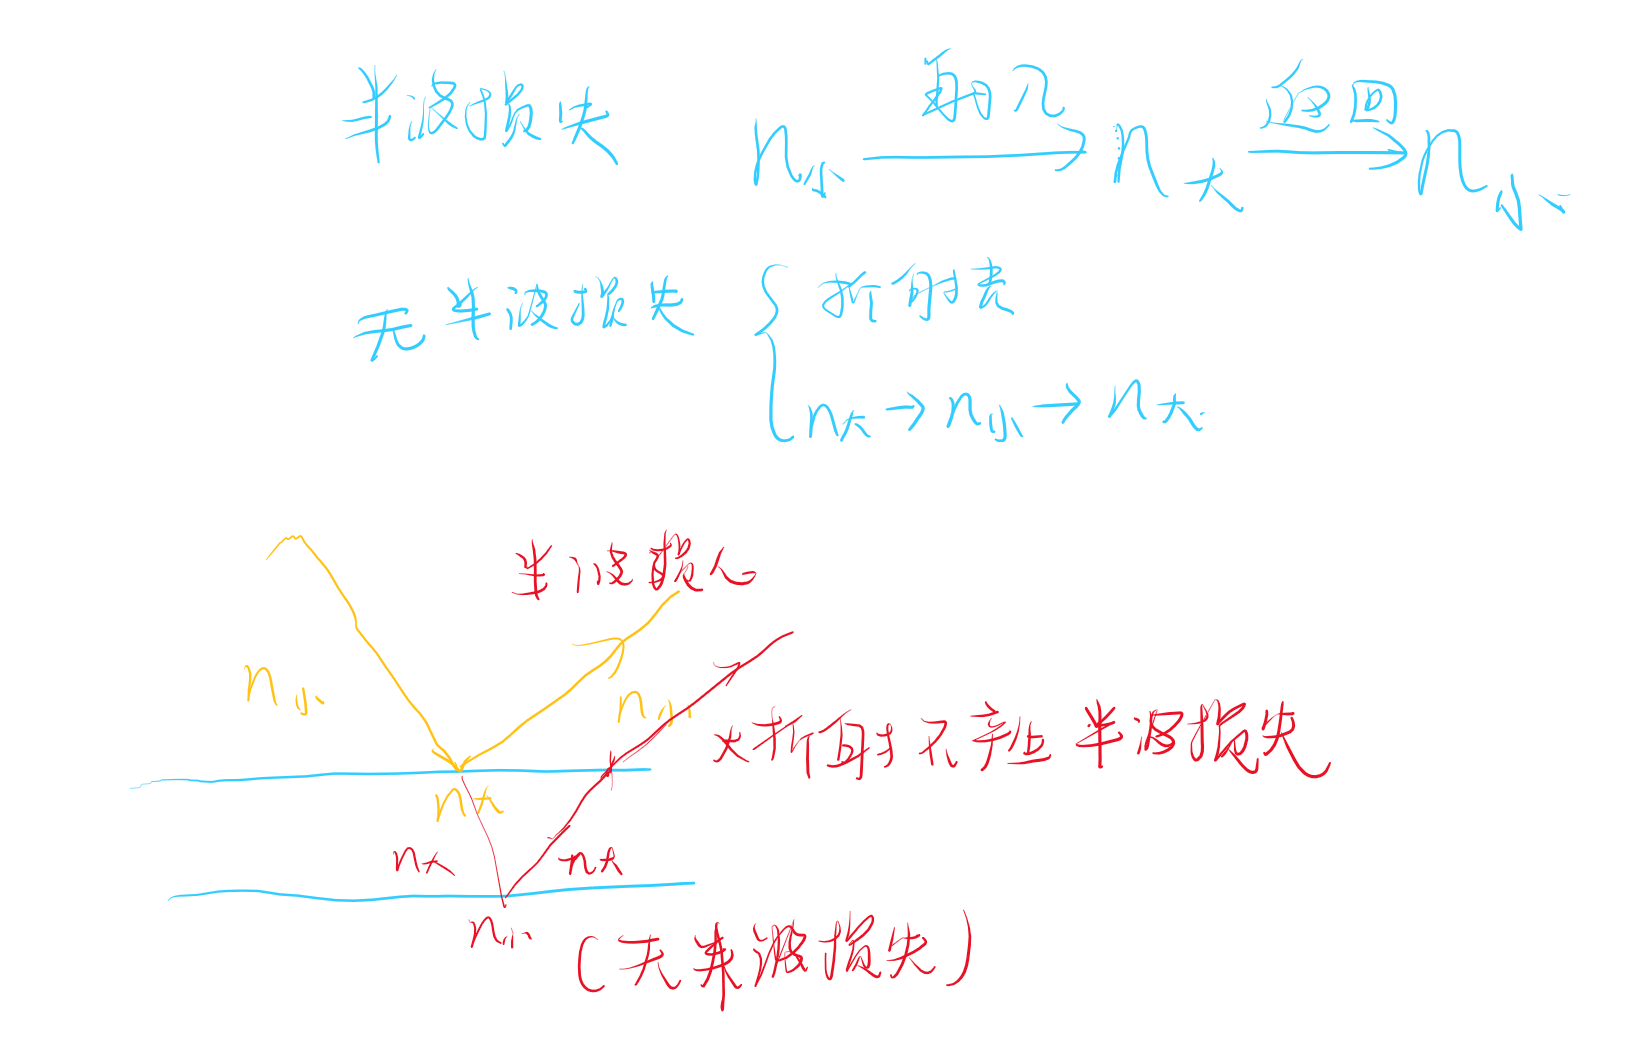 半波损失 n小 射入→ n大 返回→ n小
无半波损失 { 折射光
n大→n小→n大
半波损
n小 n小
折射不产生半波损失
n大
n大 n大
n小 (无半波损失)